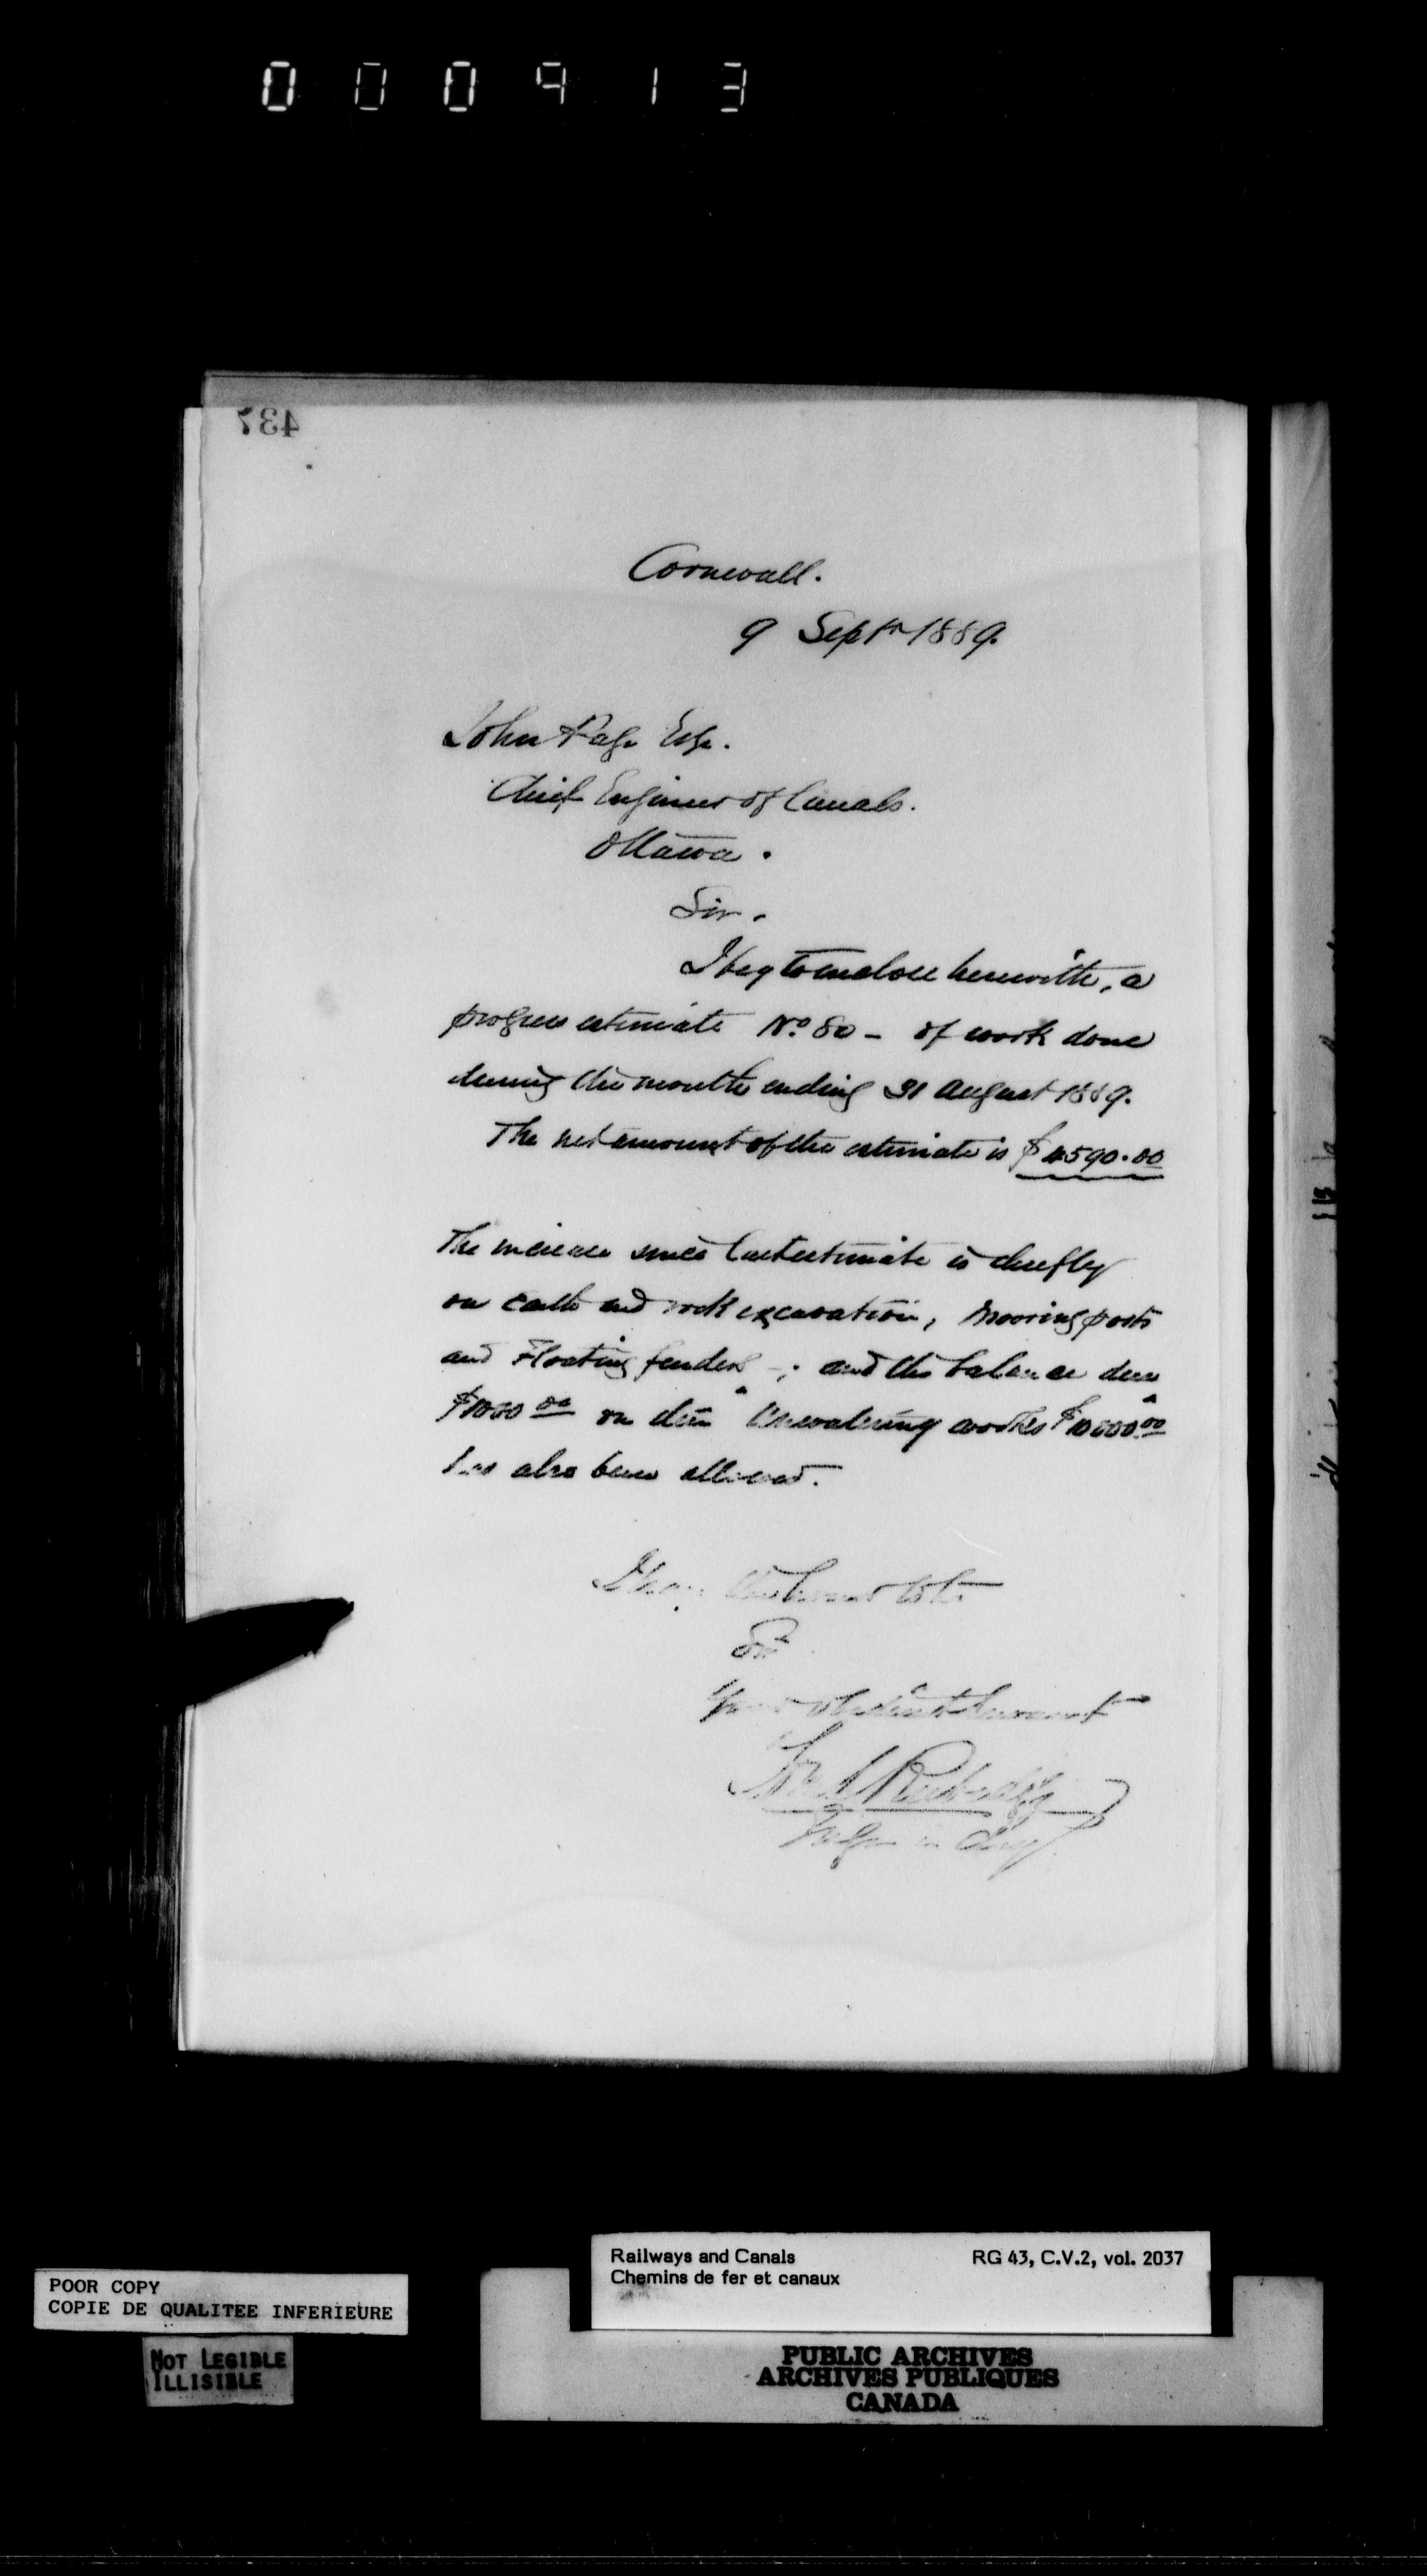 000913
437
Cornwall.
9 Septr 1889.
John Page Esq.
Chief Engineer of Canals.
Ottawa.
Sir.
I beg to enclose herewith, a
progress estimate No. 80 - of work done
during the month ending 31 August 1889.
The net amount of the estimate is $ 4590.00
The increase since last estimate is chiefly
on earth and rock excavation, Mooring posts
and Floating fenders -; and the balance due
$1000 00 on item "Unwatering works $10000 00"
has also been allowed.
I have the honor to be
Sir
Your obedient Servant
Engr in Chg.
Railways and Canals
Chemins de fer et canaux
RG 43, C.V.2, vol. 2037
POOR COPY
COPIE DE QUALITEE INFERIEURE
NOT LEGIBLE
ILLISIBLE
PUBLIC ARCHIVES
ARCHIVES PUBLIQUES
CANADA